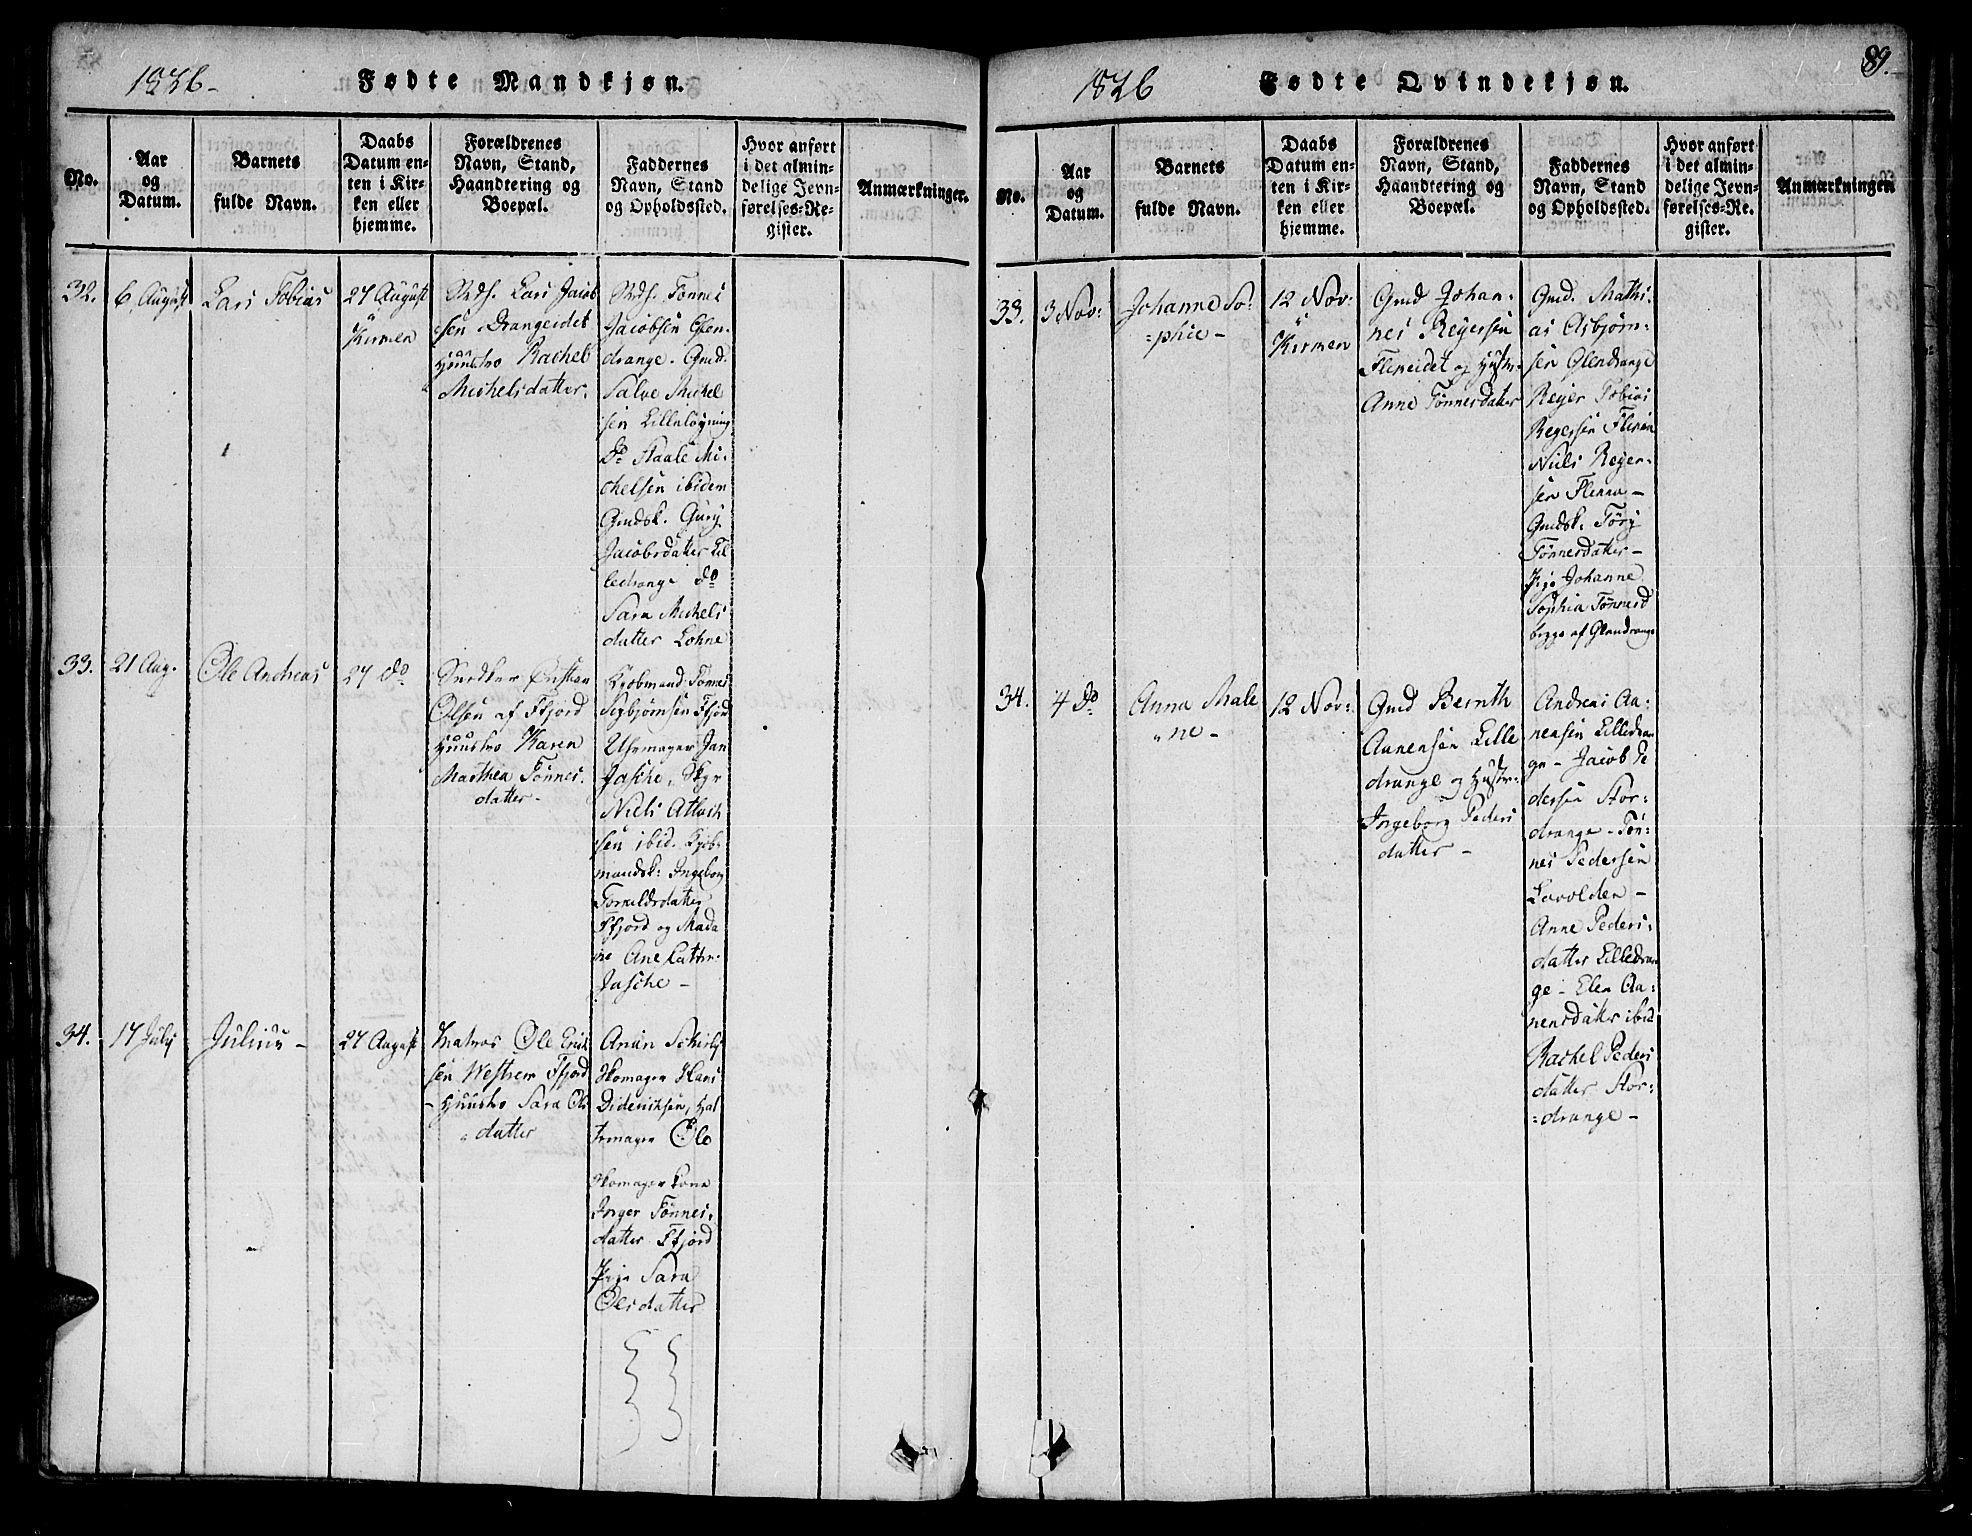 1826-
Fødte Mandkjøn.
No.
Aar
og
Datum.
Barnets
fulde Navn.
Daabs
Datum en-
ten i Kir-
ken eller
hjemme.
Forældrenes
Navn, Stand,
Haandtering og
Boepæl.
Faddernes
Navn, Stand
og Opholdssted.
Hvor anført
i det almin-
delige Jevn-
førelses-Re-
gister.
Anmærkninger.
32.
6 August
Lars Tobias
27 August
Kirken
Lars Jacob
sen Drangeidet
Huustro Rachel
Michelsdatter.
Tønnes
Jacobsen Glen-
drange. Gmd.
Salve Michel
sen Lilleløgning
Do Staale Mi-
chelsen ibidem
Gmdsk. Gury
Jacobsdatter Lil
ledrange do
Sara Michels
datter Lohne
33.
21 Aug.
Ole Andreas
27 do
Snedker
Olsen af Ffjord
Huustro Karen
Marthea Tønnes.
datter-
Kjøbmand Tønnes
Asbjørnsen Ffjord
Uhrmager Jan
Jasche,
Niels
sen ibid. Kjøb-
mandsk: Ingeborg
Ffjord og Mada
me Ane
Jasche -
34.
17 July
Julius -
27 August
Matros Ole Erik
sen Westrem Ffjord
- Huustro Sara Ols
datter
Hans
Dideriksen, Hat
temager Ole
Skomager kone
Inger Tønnes.
datter Ffjord
Pige Sara
Olsdatter
1826
Fødte Qvindekjøn.
89.
No.
Aar
og
Datum.
Barnets
fulde Navn.
Daabs
Datum en-
ten i Kir-
ken eller
hjemme.
Forældrenes
Navn, Stand,
Haandtering og
Boepæl.
Faddernes
Navn, Stand
og Opholdssted.
Hvor anført
i det almin-
delige Jevn-
førelses-Re-
gister.
Anmærkningen
33.
3 Nov:
Johanne So-
=phie -
12 Nov:
Kirken
Gmd Johan-
nes Reyersen
Fleseidet og Hustr.
Anne Tønnesdatter
Gmd. Mathi-
as Asbjørn-
sen Glendrange
Reyer Tobias
Reyersen
Niels Reyer-
sen
Gmdsk. Tøry
Tønnesdatter -
Pige Johanne
Sophia Tønnesd
begge af Glendrange
34.
4 Do
Anna Male
"ne -
12 Nov:
Gmd Bernth
Aanensen Lille
drange og Hustr.
Ingeborg Peders
datter -
Andreas Aa-
nensen Lilledran
ge - Jacob Pe
dersen Stor-
drange - Tøn-
nes Pedersen
Lovolden -
Anne Peders-
datter Lilledran
ge - Elen Aa-
nensdatter ibid
Rachel Peders
datter Stor-
=drange -